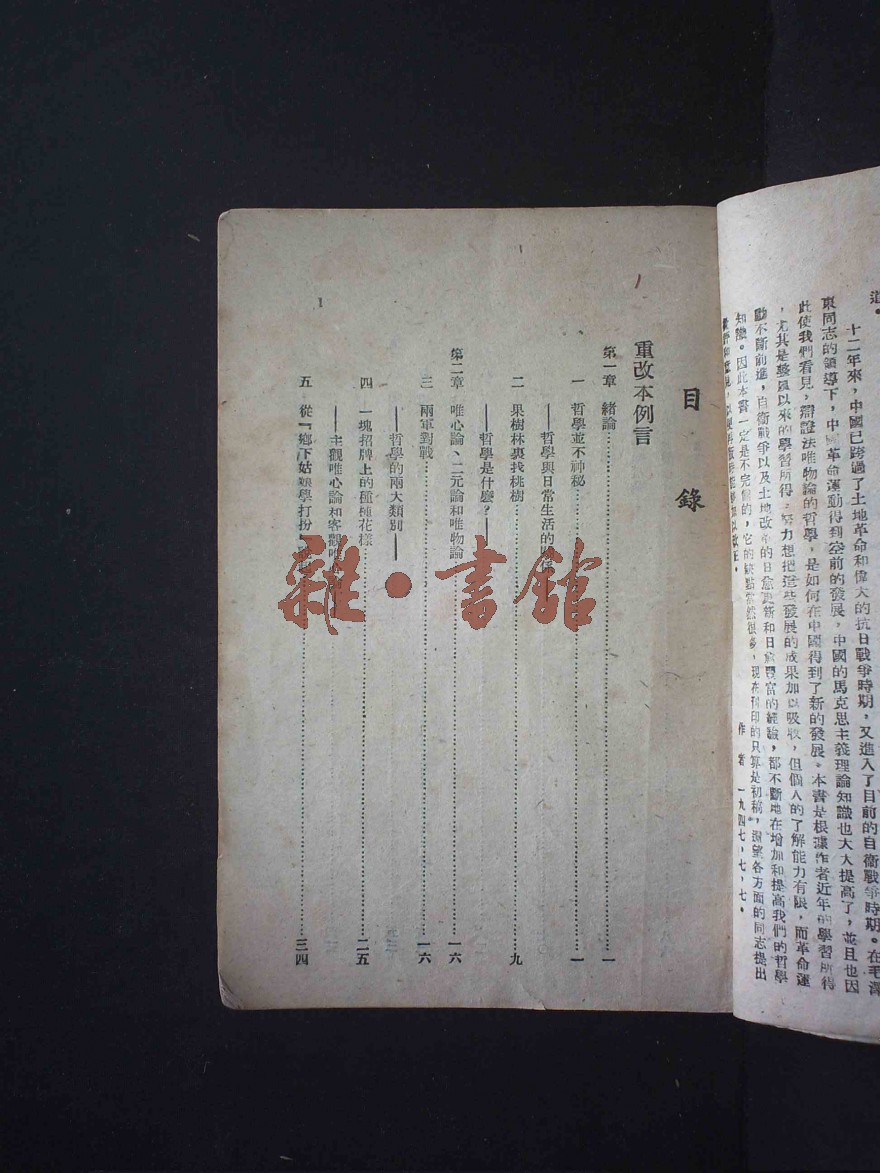 道。
十二年來，中國已跨過了土地革命和偉大的抗日戰爭時期，又進入了目前的自衛戰爭時期。在毛澤
東同志的領導下，中國革命運動得到空前的發展，中國的馬克思主義理論知識也大大提高了，並且也因
此使我們看見，辯證法唯物論的哲學，是如何在中國得到了新的發展。本書是根據作者近年的學習所得
，尤其是整風以來的學習所得，努力想把這些發展的成果加以吸收，但個人的了解能力有限，而革命運
動不斷前進，自衛戰爭以及土地改革的日愈更新和日愈豐富的經驗，都不斷地在增加和提高我們的哲學
知識。因此本書一定是不完備的，它的缺點當然很多，現在刊印的只算是初稿，還望各方面的同志提出
作者 一九四七，七，七。
目錄
重改本例言
第一章 緒論……一
一 哲學並不神秘……一
——哲學與日常生活的
二 果樹林裏找桃樹……九
——哲學是什麼？——
第二章 唯心論、二元論和唯物論……一六
三 兩軍對戰……一六
——哲學的兩大類別——
四 一塊招牌上的種種花樣……二五
——主觀唯心論和客觀唯
五 從「鄉下姑娘學打扮……三四
1
雜·書館